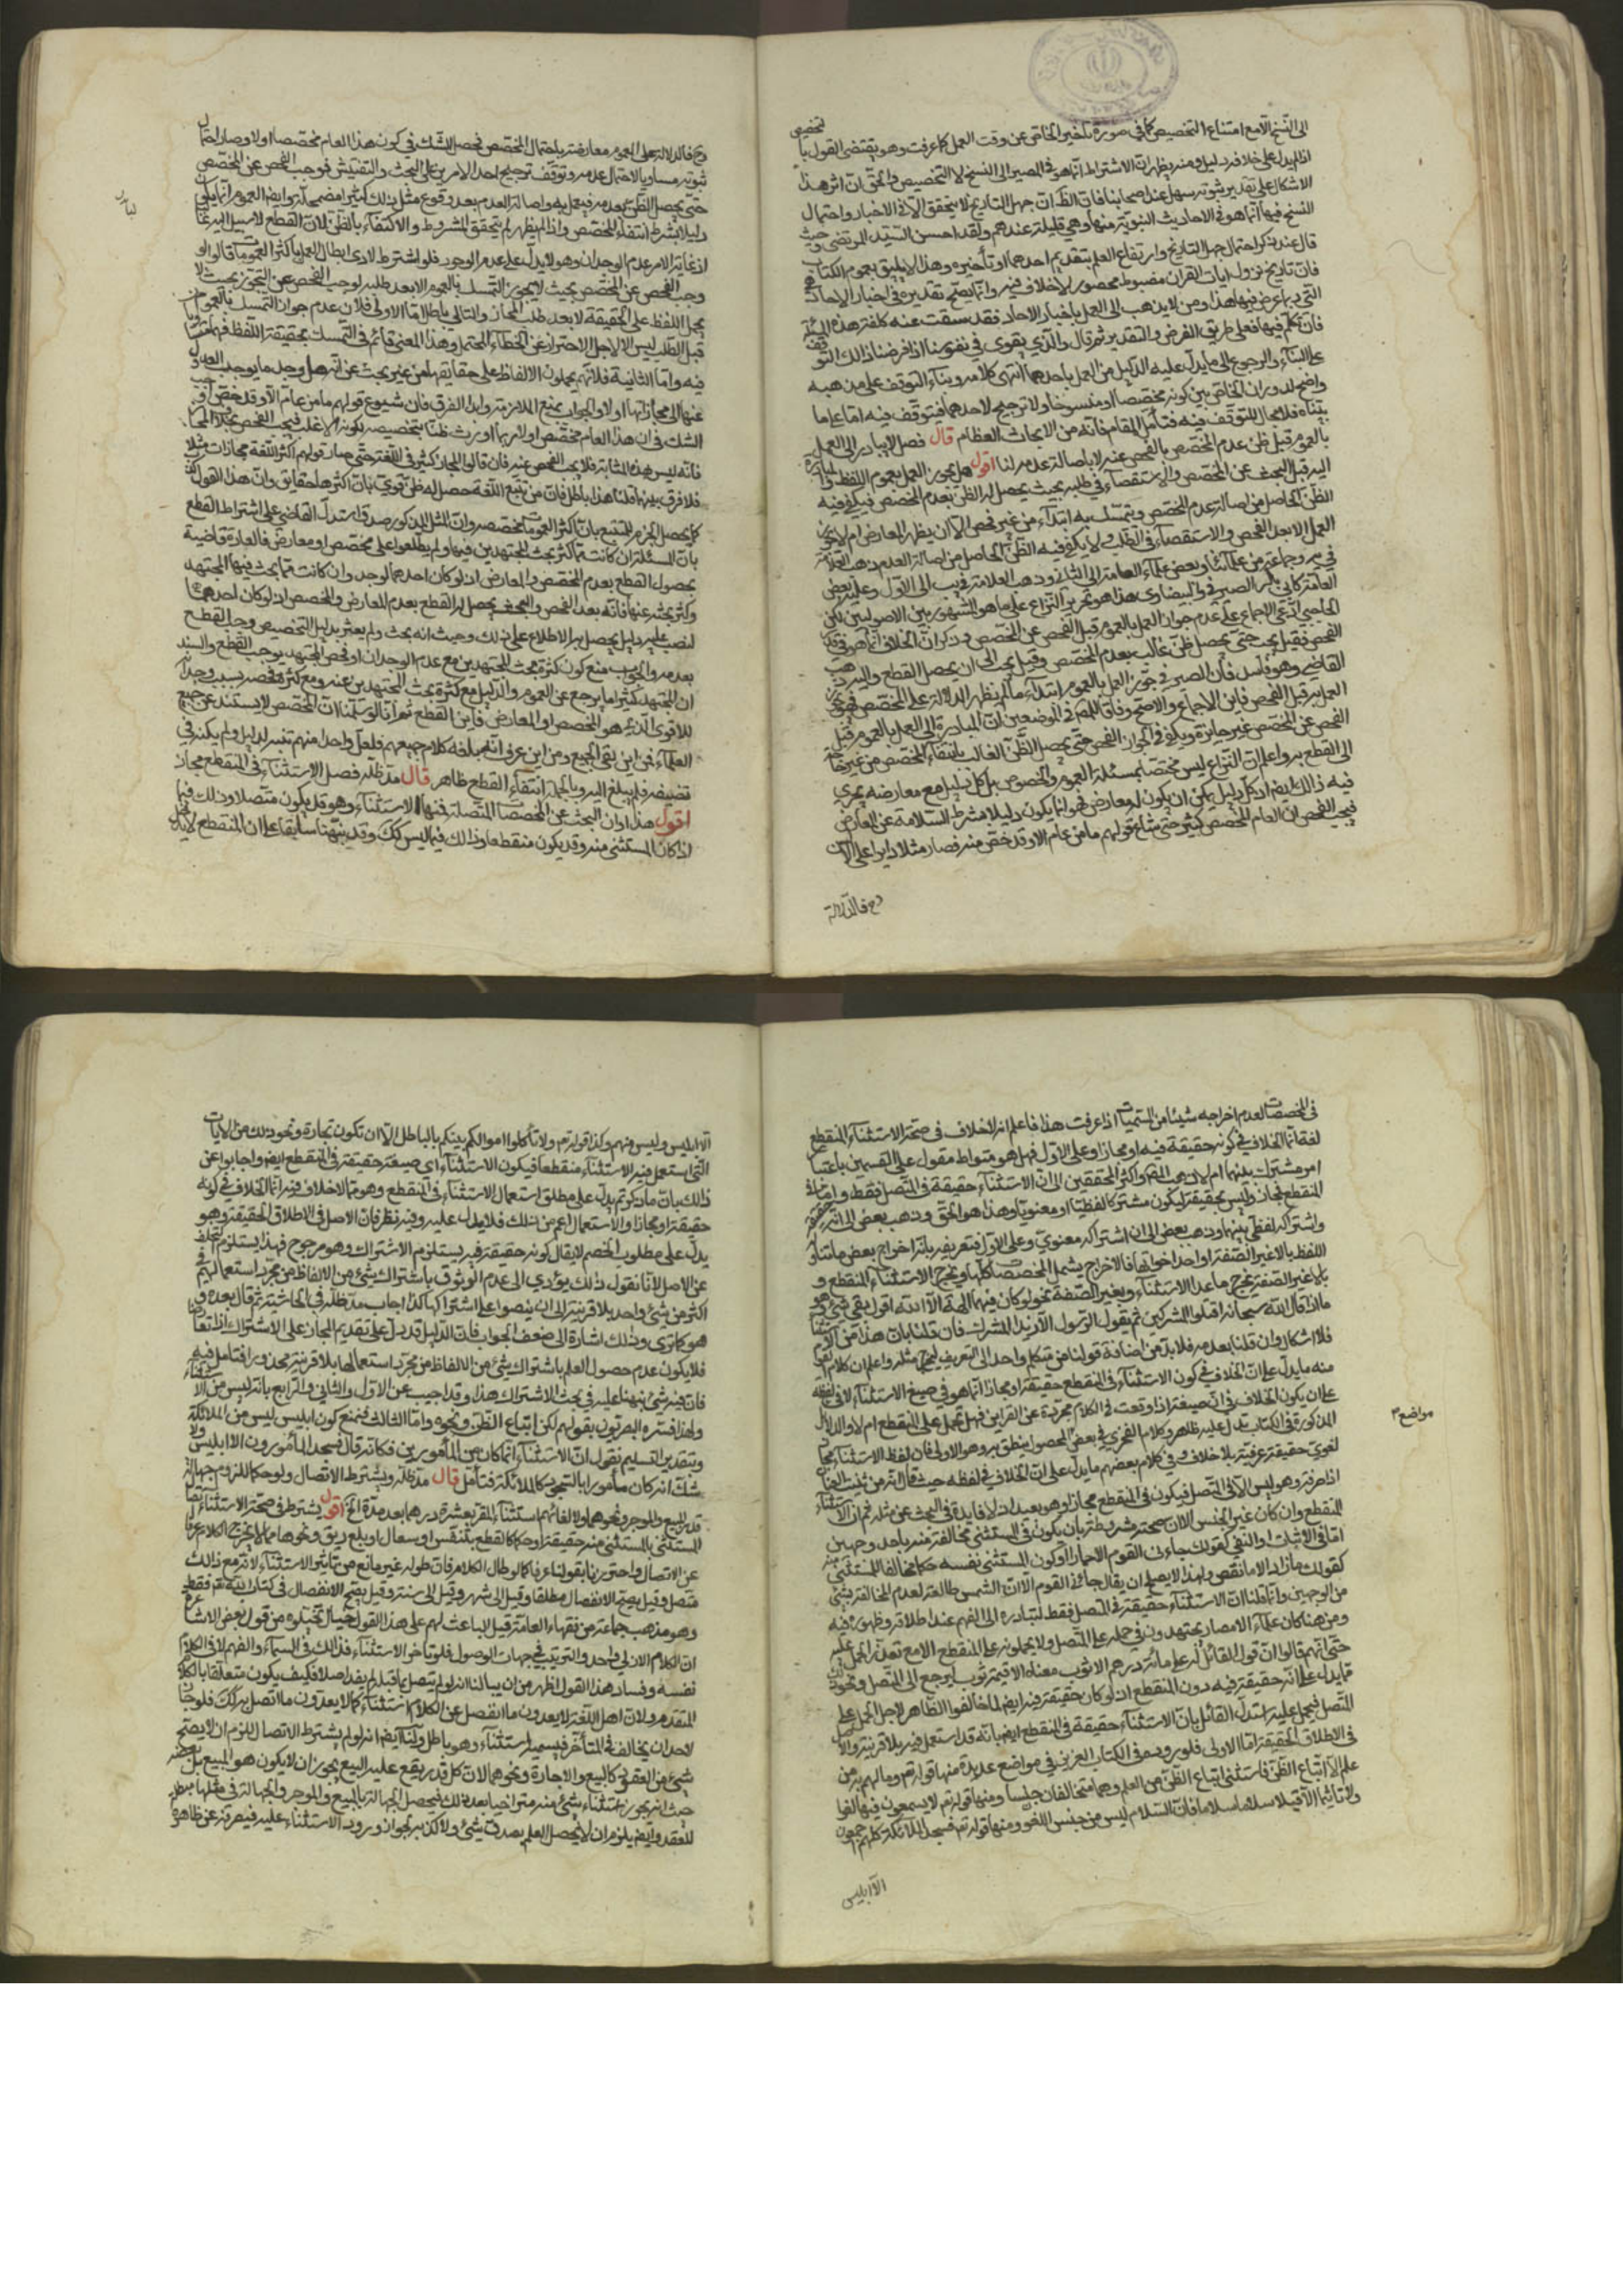 الى النسخ الا مع امتناع التخصيص كما في صورة تأخير الخاص عن وقت العمل كما عرفت وهو يقتضى القول با
لتخصيص
اذا لم يدل على خلافه دليل ومنه يظهر ان الاشتراط انما هو في المصير الى النسخ لا التخصيص والحق ان اثر هذا
الاشكال على تقدير ثبوته سهل عند اصحابنا فان الظ ان جهل التاريخ لا يتحقق الا في الاخبار واحتمال
النسخ فيها انما هو في الاحاديث النبوية منها وهي قليلة عندهم ولقد احسن السيد المرتضى حيث
قال عند ذكر احتمال جهل التاريخ وارتفاع العلم بتقديم احدهما او تأخيره وهذا لا يليق بعموم الكتاب
فان تاريخ نزول ايات القران مضبوط محصور لا خلاف فيه وانما يصح تقديره في اخبار الاحاد
التي ربما عرض فيها هذا ومن لا يذهب الى العمل باخبار الاحاد فقد سقطت عنه كلفة هذه المسئلة
فان تكلم فيها فعلى طريق الفرض والتقدير ثم قال والذي يقوى في نفوسنا اذا فرضنا ذلك التوقف
على البناء والرجوع الى ما يدل عليه الدليل من العمل باحدهما انتهى كلامه وبناء التوقف على مذهبه
واضح لدوران الخاص بين كونه مخصصا او منسوخا ولا ترجيح لاحدهما فيتوقف فيه اما على ما
بيناه فلا مجال للتوقف فيه فتأمل المقام فانه من الابحاث العظام قال فصل لا يبادر الى العمل
بالعموم قبل ظن عدم المخصص بالفحص عنه لا باصالة عدمه لنا اقول هل يجوز العمل بعموم اللفظ والمبادرة
اليه قبل البحث عن المخصص والاستقصاء في طلبه بحيث يحصل له الظن بعدم المخصص فيكفي فيه
الظن الحاصل من اصالة عدم المخصص ويتمسك به ابتداء من غير فحص الا ان يظهر المعارض ام لا يجوز
العمل الا بعد الفحص والاستقصاء في الطلب ولا يكفي فيه الظن الحاصل من اصالة العدم ذهب العلامة
في يب وجماعة من علمائنا وبعض علماء العامة الى الثاني وذهب العلامة في يب الى الاول وعليه بعض
العامة كابي بكر الصيرفي والبيضاوي هذا هو تحرير النزاع على ما هو المشهور بين الاصوليين لكن
الحاجبي ادعى الاجماع على عدم جواز العمل بالعموم قبل الفحص عن المخصص وذكر ان الخلاف انما هو في قدر
الفحص فقيل يبحث حتى يحصل ظن غالب بعدم المخصص وقيل يبحث الى ان يحصل القطع واليه ذهب
القاضي وهو فاسد فان الصيرفي جوز العمل بالعموم ابتداء ما لم يظهر الدلالة على المخصص فهو
العمل به قبل الفحص فاين الاجماع والاصح وفاقا للمص في الموضعين ان المبادرة الى العمل بالعموم قبل
الفحص عن المخصص غير جائزة ويكفي في الجواز الفحص حتى يحصل الظن الغالب بانتفاء المخصص من غير حاجة
الى القطع به واعلم ان النزاع ليس مختصا بمسئلة العموم والخصوص بل كل دليل مع معارضه يجري
فيه ذلك ايضا اذ كل دليل يمكن ان يكون له معارض فهو انما يكون دليلا بشرط السلامة عن المعارض
فيجب الفحص ان العام المخصص كثير حتى شاع قولهم ما من عام الا وقد خص منه فصار مثلا دايرا على الالسن
وح فالدلالة
وح فالدلالة على العموم معارضة باحتمال المخصص فحصل الشك في كون هذا العام مخصصا اولا وصار احتمال
ثبوته مساويا لاحتمال عدمه وتوقف ترجيح احد الامرين على البحث والتفتيش فوجب الفحص عن المخصص
حتى يحصل الظن بعدمه فيعمل به واصالة العدم بعد وقوع مثل ذلك كثيرا مضمحلة وايضا العموم انما يكون
دليلا بشرط انتفاء المخصص واذا لم يظهر لم يتحقق المشروط والاكتفاء بالظن لان القطع لا سبيل اليه غالبا
اذ غاية الامر عدم الوجدان وهو لا يدل على عدم الوجود فلو اشترط لادى ابطال العمل باكثر العمومات قالوا لو
وجب الفحص عن المخصص بحيث لا يجوز التمسك بالعموم الا بعد طلبه لوجب الفحص عن التجوز بحيث لا
يحمل اللفظ على الحقيقة الا بعد طلب المجاز والتالي باطل اما الاولى فلان عدم جواز التمسك بالعموم
قبل الطلب ليس الا لاجل الاحتراز عن الخطاء المحتمل وهذا المعنى قائم في التمسك بحقيقة اللفظ
فيه واما الثانية فلانهم يحملون الالفاظ على حقايقها من غير بحث عن انه هل وجد ما يوجب العدول
عنها الى مجازاتها اولا والجواب بمنع الملازمة وابداء الفرق فان شيوع قولهم ما من عام الا وقد خص اوجب
الشك في ان هذا العام مخصص اولا ربما اورث ظنا بتخصيصه لكونه الاغلب فيجب الفحص بخلاف المجاز
فانه ليس بهذه المثابة فلا يجب الفحص عنه فان قالوا المجاز كثير في اللغة حتى صار قولهم اكثر اللغة مجازات مثلا
فلا فرق بينهما قلنا هذا باطل فان من تتبع اللغة حصل له ظن قوي بان اكثرها حقايق وان هذا القول
كما يحصل الجزم للمتتبع بان اكثر العمومات مخصصة وان المثل المذكور صدق استدل القاضي على اشتراط القطع
بان المسئلة ان كانت مما كثر بحث المجتهدين فيها ولم يطلعوا على مخصص او معارض فالعادة قاضية
بحصول القطع بعدم المخصص والمعارض اذ لو كان احدهما لوجد وان كانت مما يبحث فيها المجتهد
وكثر بحثه عنها فانه بعد الفحص والبحث يحصل له القطع بعدم المعارض والمخصص اذ لو كان احدهما
لنصب عليه دليل يحصل به الاطلاع على ذلك وحيث انه بحث ولم يعثر بدليل التخصيص وجد القطع
بعدمه والجواب منع كون كثرة بحث المجتهدين مع عدم الوجدان او فحص المجتهد يوجب القطع والسند
ان المجتهد كثيرا ما يرجع عن العموم والدليل مع كثرة بحث المجتهدين عنه ومع كثرة فحصه بسبب وجدانه
للاقوى الذي هو المخصص او المعارض فاين القطع ثم انا لو سلمنا ان المخصص لا يستند عن جميع
العلماء فمن اين لقي الجميع ومن اين عرف انه بلغه كلام جميعهم فلعل واحدا منهم تنبه لدليل ولم يكتبه في
تصنيفه فلم يبلغ اليه وبالجملة انتفاء القطع ظاهر قال مد ظله فصل الاستثناء في المنقطع مجاز
اقول هذا اوان البحث عن المخصصات المتصلة فمنها الاستثناء وهو قد يكون متصلا وذلك فيما
اذا كان المستثنى منه وقد يكون منقطعا وذلك فيما ليس كك وقد نبهنا سابقا على ان المنقطع لا يدخل
في المخصصات لعدم اخراجه شيئا من المسميات اذا عرفت هذا فاعلم انه لا خلاف في صحة الاستثناء المنقطع
لغة انما الخلاف في كونه حقيقة فيه او مجازا وعلى الاول فهل هو متواط مقول على القسمين باعتبار
امر مشترك بينهما ام لا ذهب المص واكثر المحققين الى ان الاستثناء حقيقة في المتصل فقط واما في
المنقطع فمجاز وليس بحقيقة ليكون مشتركا لفظيا او معنويا وهذا هو الحق وذهب بعض الى انه حقيقة
واشتراكه لفظي بينهما وذهب بعض الى ان اشتراكه معنوي وعلى الاول فتعريفه بانه اخراج بعض ما تناوله
اللفظ بالا غير الصفة او احد اخواتها فالاخراج يشمل المخصصات كلها ويخرج الاستثناء المنقطع و
بالا غير الصفة يخرج ما عدا الاستثناء وبغير الصفة نحو لو كان فيهما الهة الا الله اقول بقي شيء وهو
ما اذا قال الله سبحانه اقتلوا المشركين ثم يقول الرسول الا زيدا المشرك فان قلنا بان هذا من
فلا اشكال وان قلنا بعدمه فلا بد من اضافة قولنا من متكلم واحد الى التعريف ليخرج مثله واعلم ان كلام القوم
منه ما يدل على ان الخلاف في كون الاستثناء في المنقطع حقيقة او مجازا انما هو في صيغ الاستثناء لا في لفظه
على ان يكون الخلاف في ان صيغة اذا وقعت في الكلام مجردة عن القراين فهل تحمل على المنقطع ام لا والدلائل
المذكورة في الكتاب تدل عليه ظاهرا وكلام الفخري في بعض المحصول ينطق به وهو الاولى فان لفظ الاستثناء مجاز
لغوي حقيقة عرفية بلا خلاف وفي كلام بعضهم ما يدل على ان الخلاف في لفظه حيث قال انه من ثنيت العنان
اذا صرفته وهو ليس الا في المتصل فيكون في المنقطع مجازا وهو بعيد اذ لا فايدة في البحث عن مثله ثم ان الاستثناء
المنقطع وان كان غير الجنس الا ان صحته مشروطة بان يكون في المستثنى مخالفة منه باحد وجهين
اما في الاثبات او النفي كقولك جاءني القوم الا حمارا او كون المستثنى نفسه حكما مخالفا للمستثنى منه
كقولك ما زاد الا ما نقص ولهذا لا يصح ان يقال جائني القوم الا ان الشمس طالعة لعدم المخالفة بشيء
من الوجهين وانما قلنا ان الاستثناء حقيقة في المتصل فقط لتبادره الى الفهم عند اطلاقه وظهوره فيه
ومن هنا كان علماء الامصار يجتهدون في حمله على المتصل ولا يحملونه على المنقطع الا مع تعذر الحمل عليه
حتى انهم قالوا ان قول القائل له على مائة درهم الا ثوب معناه الا قيمة ثوب ليرجع الى المتصل ونحو ذلك
مما يدل على انه حقيقة فيه دون المنقطع اذ لو كان حقيقة فيه ايضا لما خالفوا الظاهر لاجل الحمل على
المتصل فيحمل عليه استدل القائل بان الاستثناء حقيقة في المنقطع ايضا بانه قد استعمل فيه بلا قرينة والاصل
في الاطلاق الحقيقة اما الاولى فلوروده في الكتاب العزيز في مواضع عديدة منها قوله تعم وما لهم به من
علم الا اتباع الظن فاستثنى اتباع الظن من العلم وهما متخالفان جنسا ومنها قوله تعم لا يسمعون فيها لغوا
ولا تاثيما الا قيلا سلاما سلاما فان السلام ليس من جنس اللغو ومنها قوله تعم فسجد الملائكة كلهم اجمعون
مواضع
الا ابليس
الا ابليس وليس منهم وكذا قوله تعم ولا تأكلوا اموالكم بينكم بالباطل الا ان تكون تجارة ونحو ذلك من الايات
التي استعمل فيه الاستثناء منقطعا فيكون الاستثناء اى صيغة حقيقة في المنقطع ايضا واجابوا عن
ذلك بان ما ذكرتم يدل على مطلق استعمال الاستثناء في المنقطع وهو مما لا خلاف فيه انما الخلاف في كونه
حقيقة او مجازا والاستعمال اعم من ذلك فلا يدل عليه وفيه نظر فان الاصل في الاطلاق الحقيقة وهو
يدل على مطلوب الخصم لا يقال كونه حقيقة فيه يستلزم الاشتراك وهو مرجوح فهذا يستلزم التخلف
عن الاصل لانا نقول ذلك يؤدي الى عدم الوثوق باشتراك شيء من الالفاظ من مجرد استعمالهم في
اكثر من شيء واحد بلا قرينة الى ان ينصوا على اشتراكها كذا اجاب مد ظله في الحاشية ثم قال بعده و
هو كما ترى وذلك اشارة الى ضعف الجواب فان الدليل قد دل على تقديم المجاز على الاشتراك اذا تعارضا
فلا يكون عدم حصول العلم باشتراك شيء من الالفاظ من مجرد استعمالها بلا قرينة محذورا فتامل فيه
فان فيه شيئا نبهنا عليه في بحث الاشتراك هذا وقد اجيب عن الاول والثاني والرابع بانه ليس من الاستثناء
ولهذا فسره البصريون بقولهم لكن اتباع الظن ونحوه واما الثالث فنمنع كون ابليس ليس من الملائكة
وبتقدير التسليم نقول ان الاستثناء انما كان من المأمورين فكانه قال فسجد المأمورون الا ابليس ولا
شك انه كان مأمورا بالسجود كالملائكة فتأمل قال مد ظله ويشترط الاتصال ولو حكما للزوم جهالة
قدر المبيع والموجر ونحوهما ولالغائهم استثناء المقر بعشرة درهما بعد مدة الخ اقول يشترط في صحة الاستثناء اتصال
المستثنى بالمستثنى منه حقيقة او حكما كالقطع بتنفس او سعال او بلع ريق ونحوها مما لا يخرج الكلام عرفا
عن الاتصال واحترزنا بقولنا عرفا كما لو طال الكلام فان طوله غير مانع من تأثير الاستثناء لانه مع ذلك
متصل وقيل يصح الانفصال مطلقا وقيل الى شهر وقيل الى سنة وقيل يصح الانفصال في كتاب الله فقط
وهو مذهب جماعة من فقهاء العامة قيل الباعث لهم على هذا القول خيال تخيلوه من قول بعض الاشاعرة
ان الكلام الازلي واحد والترتيب في جهات الوصول فلو تأخر الاستثناء فذلك في السماع والفهم لا في الكلام
نفسه وفساد هذا القول اظهر من ان يبين لنا انه لو لم يتصل بما قبله لم يفد اصلا فكيف يكون متعلقا بالكلام
المتقدم ولان اهل اللغة لا يعدون ما انفصل عن الكلام استثناء كما لا يعدون ما اتصل به كك فلو جاز
لاحد ان يخالف في المتأخر فيسميه استثناء وهو باطل ولنا ايضا انه لو لم يشترط الاتصال للزم ان لا يصح
شيء من العقود كالبيع والاجارة ونحوهما لان كل قدر يقع عليه البيع يجوز ان لا يكون هو المبيع بل بعضه
حيث انه يجوز استثناء شيء منه متراخيا بعد ذلك فيحصل الجهالة بالمبيع والموجر والجهالة في مثلها مبطلة
للعقد وايضا يلزم ان لا يحصل العلم بصدق شيء ولا كذبه لجواز ورود الاستثناء عليه فيصرفه عن ظاهره